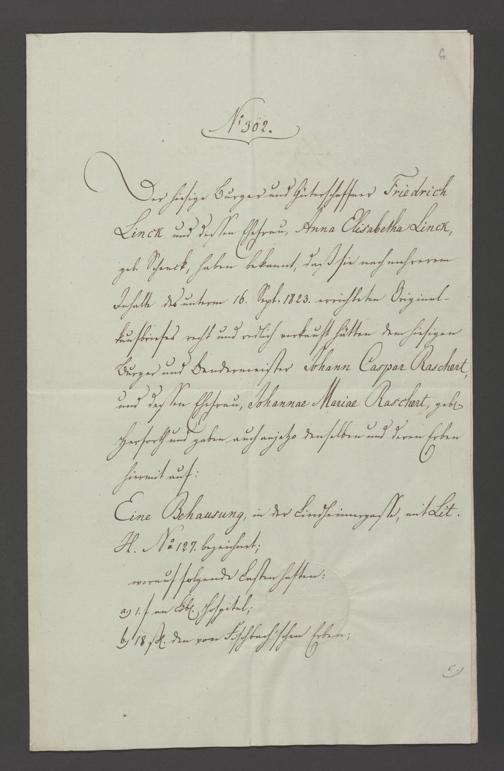 6
No 302.
Der hiesige Burger und Güterschaffner Friedrich
Linck und dessen Ehefrau, Anna Elisabetha Linck,
geb. Schenck, haben bekannt, daß sie nach mehrerem
Inhalte des unterm 16. Sept. 1823. errichteten Original-
kaufbriefes recht und redlich verkauft hätten dem hiesigen
Burger und Bendermeister Johann Caspar Raschert,
und dessen Ehefrau, Johannae Mariae Raschert, geb.
und gaben auch anjetzo denselben und deren Erben
hiermit auf:
Eine Behausung, in der Lindheimergasse, mit Lit.
H. No 127. bezeichnet;
worauf folgende Lasten haften:
a) 1. f an Hospital;
b) 18 den von Fischbach'schen Erben;